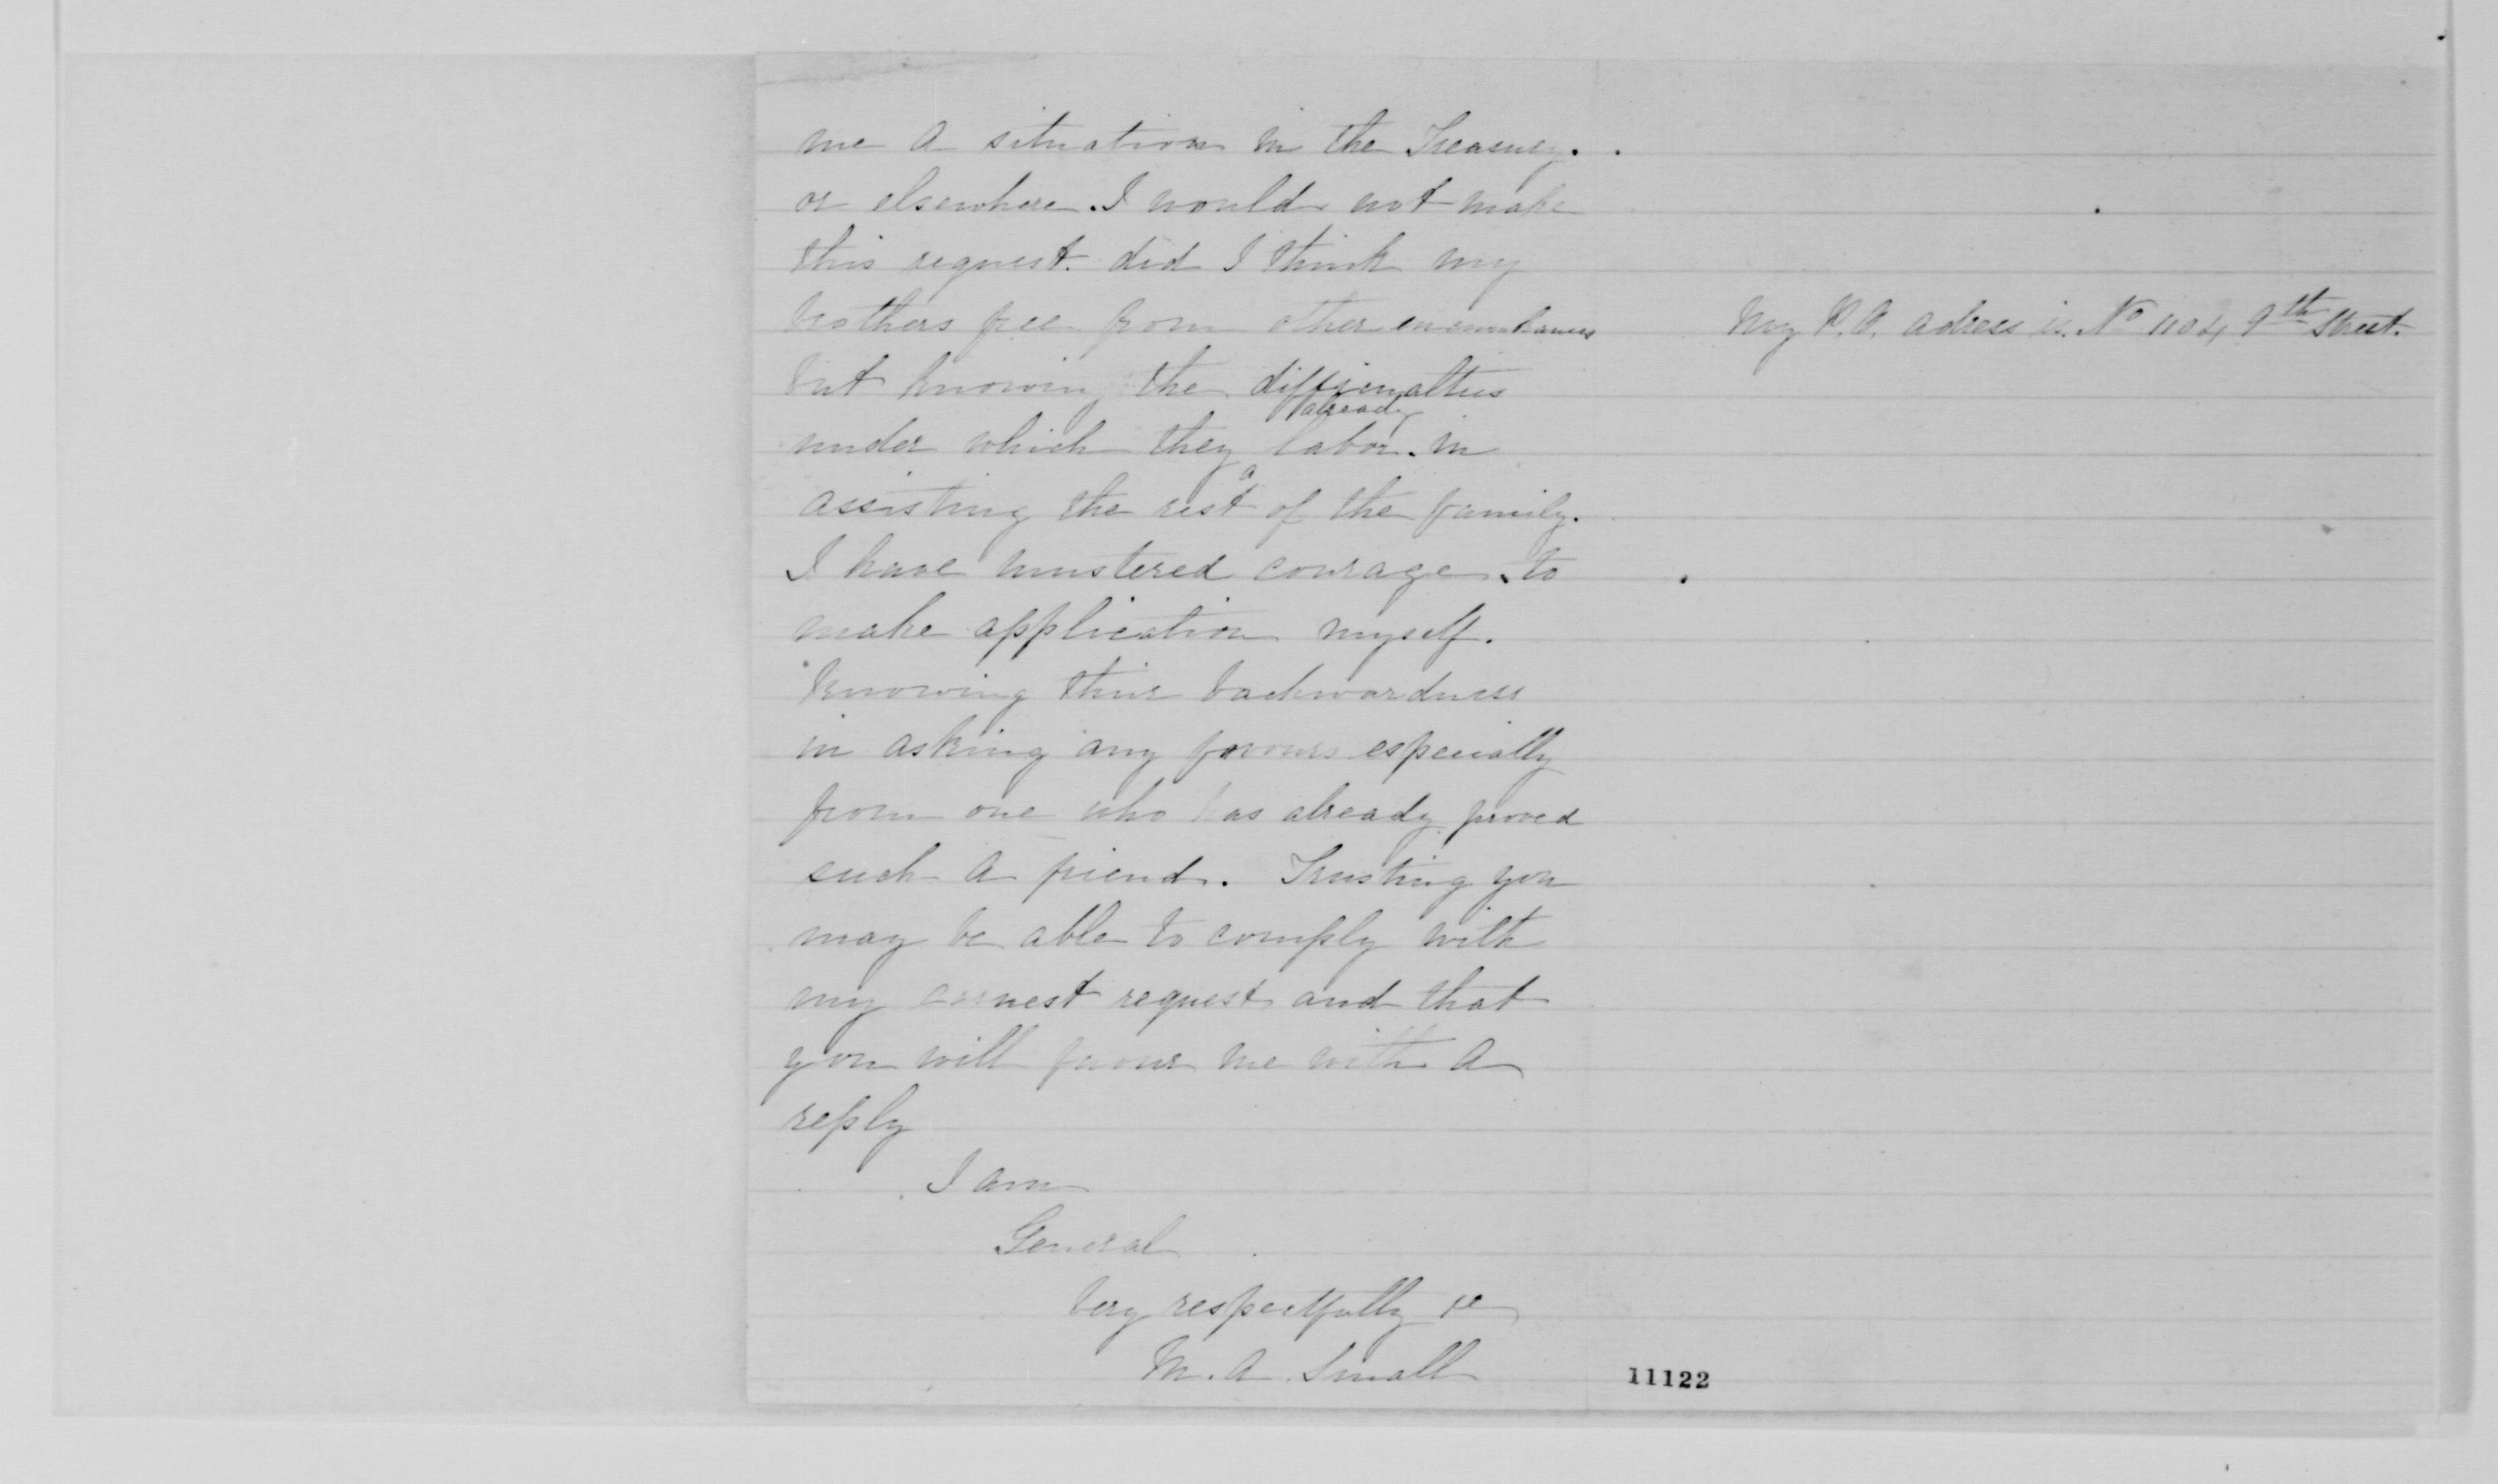 me a situation in the Treasury.
or elsewhere. I would not make
this request. did I think my
brothers free from other encumbrances
but knowing the difficulties
already
under which they labor. in
assisting the rest of the family.
I have mustered courage. to
make application myself.
Knowing thier backwardness
in asking any favours especially
from one who has already proved
such a friend. Trusting you
may be able to comply with
my earnest request and that
you will favour me with a
reply
I am
General
Very respectfully &c
M. A. Small
My P.O. adress is. No 1104 9th Street.
11122